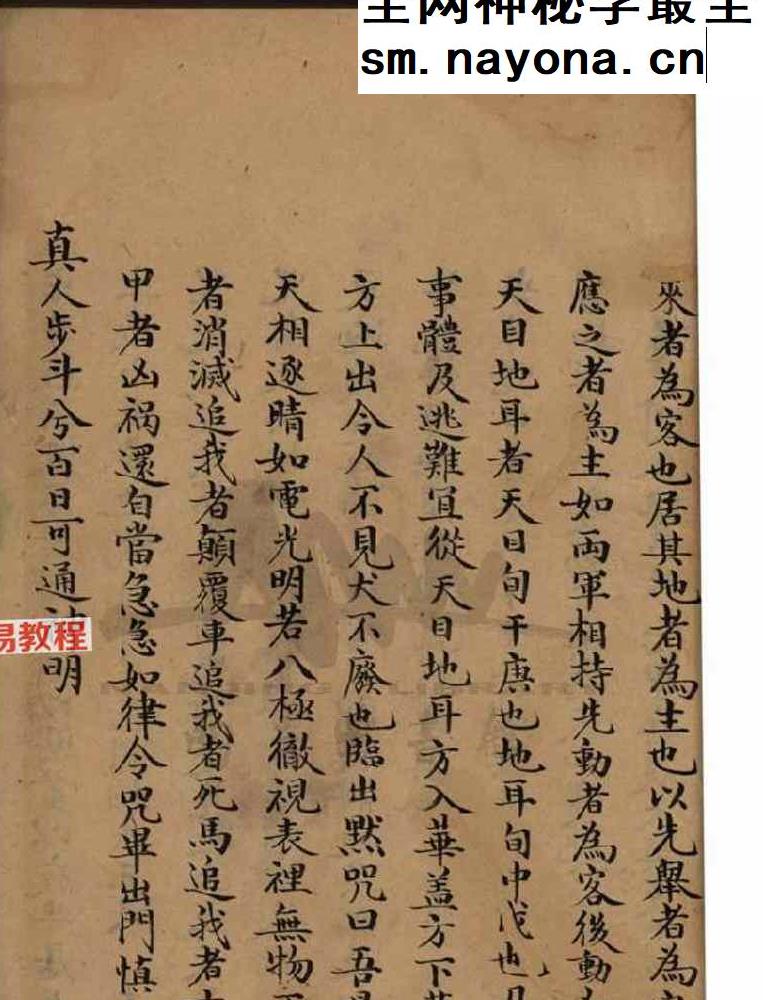 全网神秘学最全
sm.nayona.cn
來者為客也居其地者為主也以先舉者為
應之者為主如両軍相持先動者為客後動
天目地耳者天目旬干庚也地耳旬中戊也凡
事體及逃難宜從天目地耳方入華盖方下
方上出令人不見犬不廢也臨出黙咒曰吾
天相逐晴如電光明若八極徹視表裡無物
者消滅追我者顛覆車追我者死馬追我者
甲者凶禍還自當急急如律令咒畢出門慎
真人步斗兮百日可通明
易教程